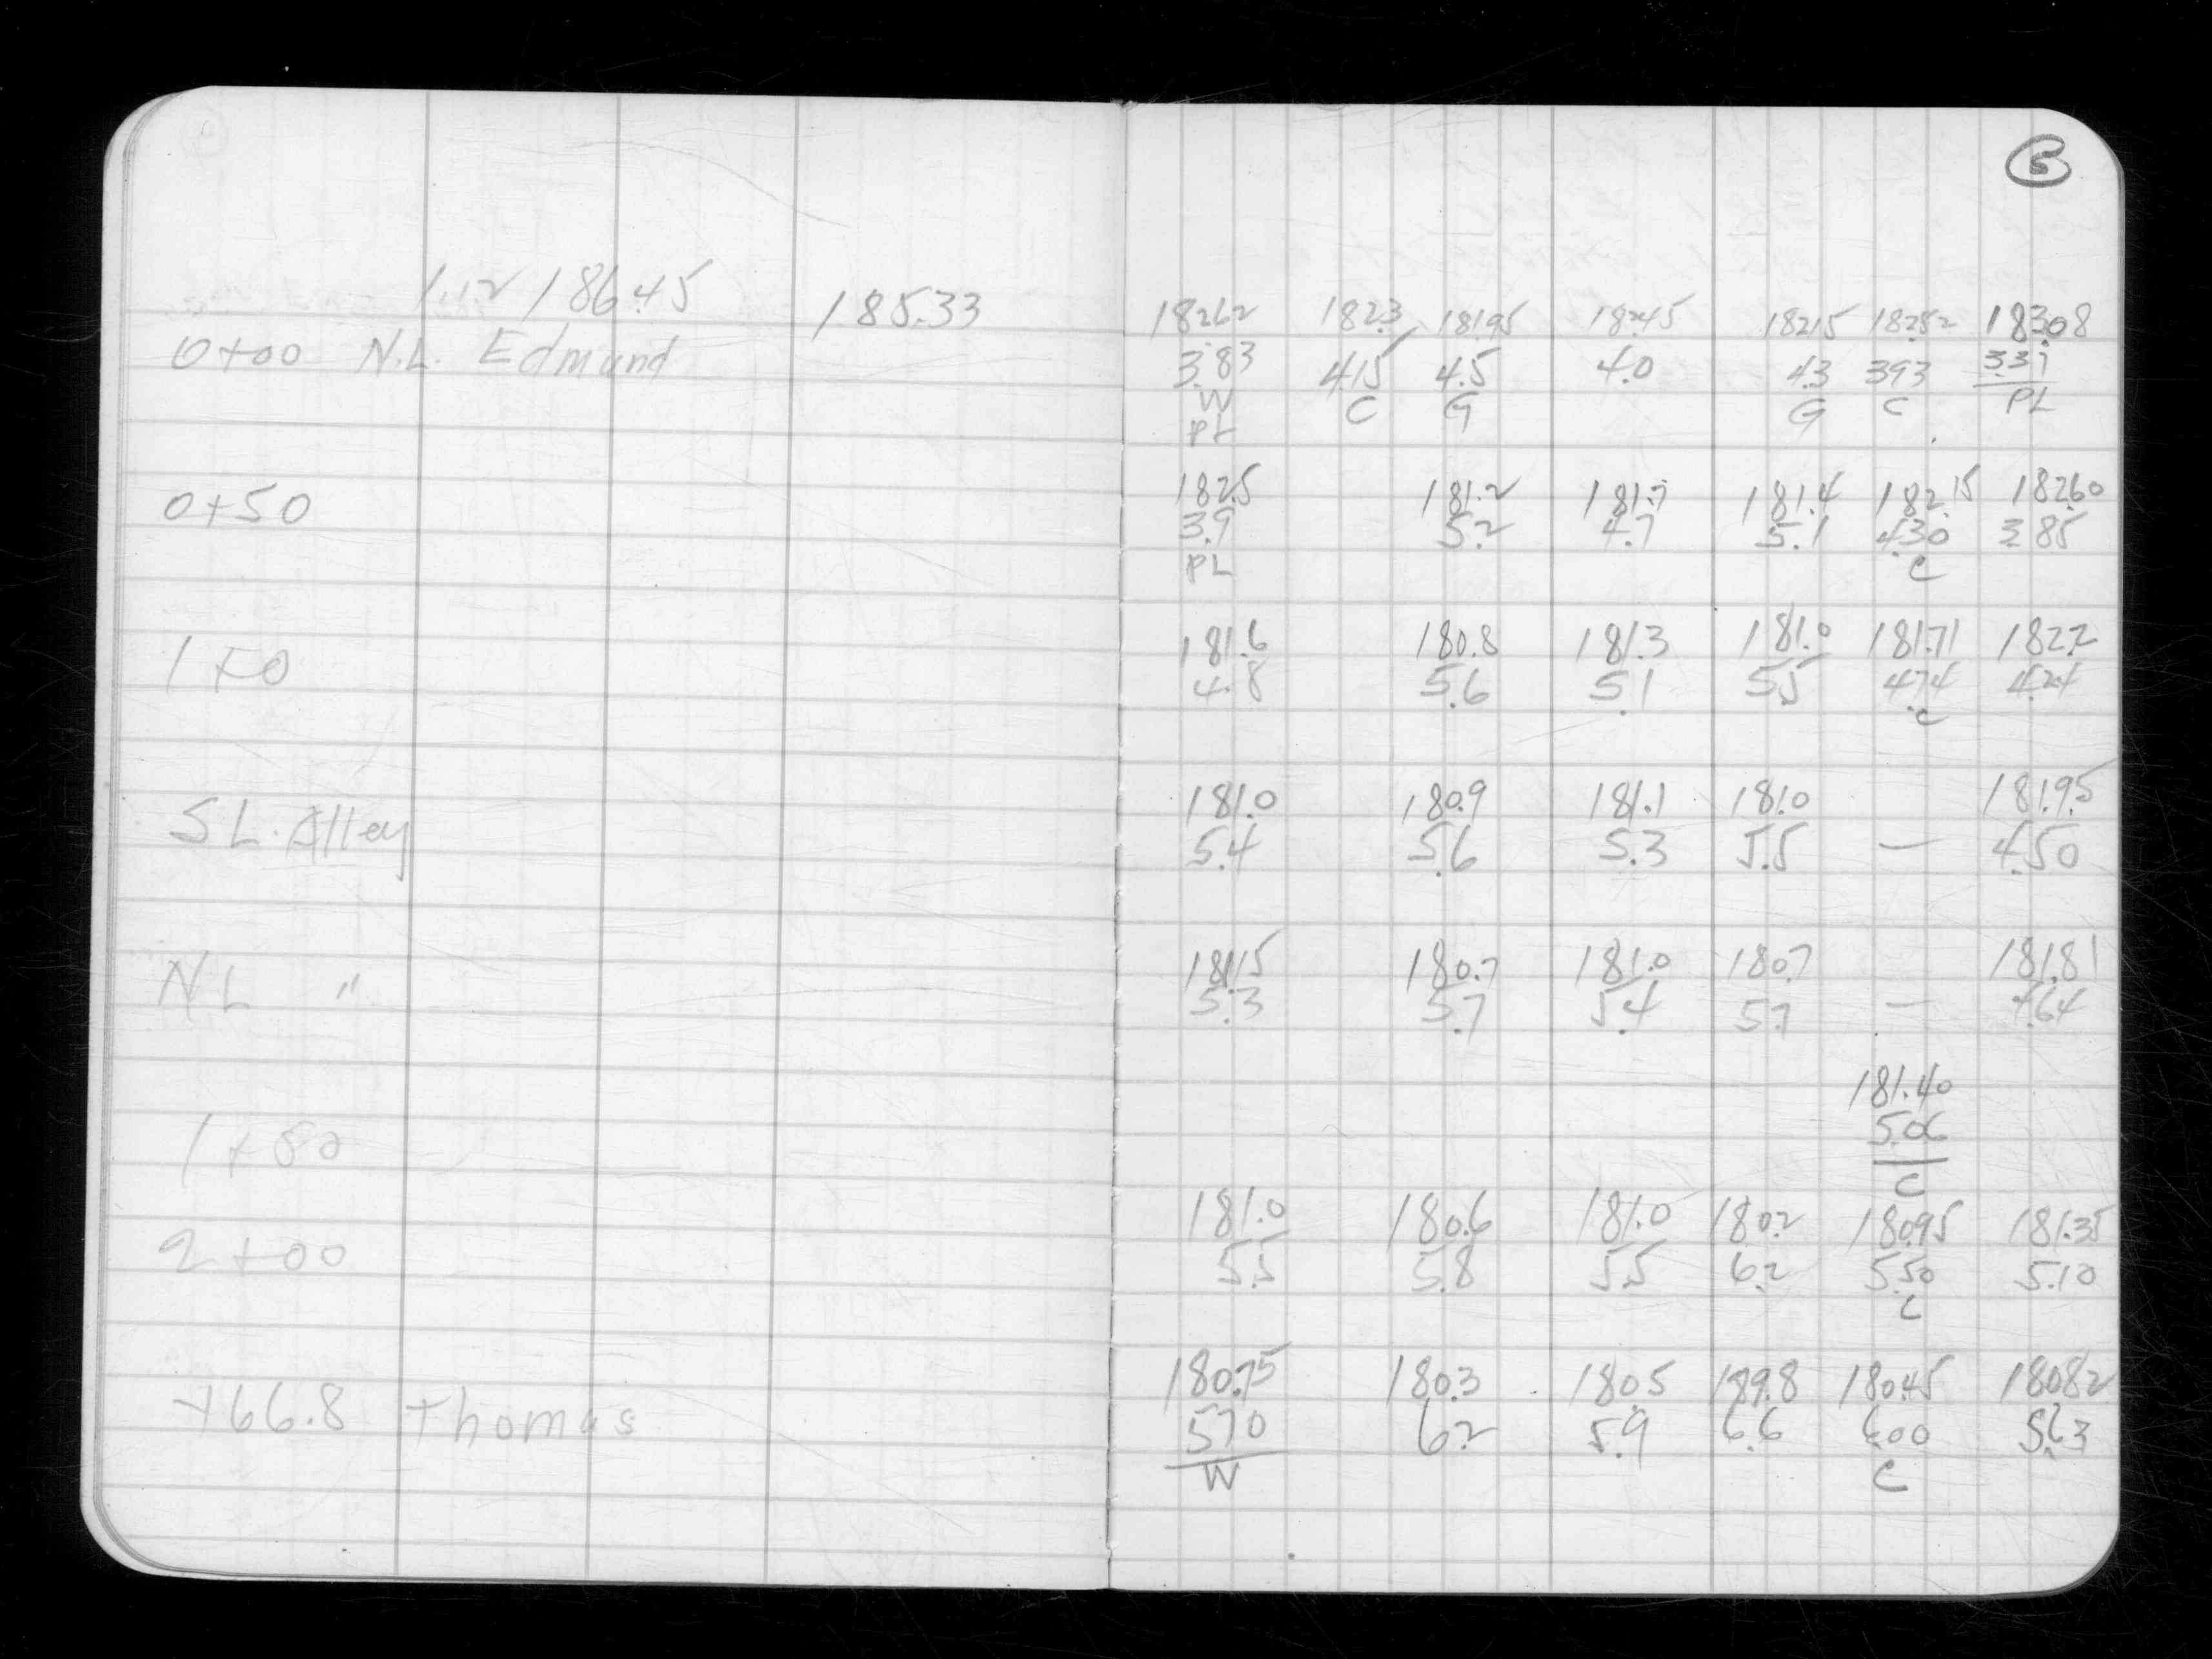 5
1.12 186.45 185.33
182.62 182.3 181.95 182.45 182.15 182.52 183.08
0+00 N.L. Edmund 3.83 4.15 4.5 4.0 4.3 3.93 3.37
W C G G C PL
PL
182.5 181.2 181.7 181.4 182.15 182.60
0+50 3.9 5.2 4.7 5.1 4.30 3.85
PL C
181.6 180.8 181.3 181.0 181.71 182.2
1+0 4.8 5.6 5.1 5.5 4.74 4.24
C
181.0 180.9 181.1 181.0 181.95
S L. Alley 5.4 5.6 5.3 5.5 — 4.50
181.15 180.7 181.0 180.7 181.81
N.L " 5.3 5.7 5.4 5.7 — 4.64
181.40
1+80 5.06
C
181.0 180.6 181.0 180.2 180.95 181.35
2+00 5.5 5.8 5.5 6.2 5.50 5.10
C
180.75 180.3 180.5 179.8 180.45 180.82
+66.8 Thomas 5.70 6.2 5.9 6.6 6.00 5.63
W C